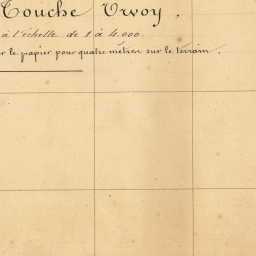 Touche Urvoy.
à l'échelle de 1 à 4.000.
r le papier pour quatre mètres sur le terrain.